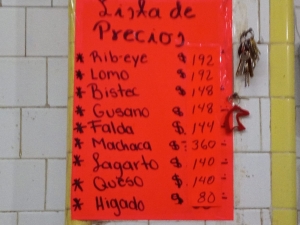 Lista de
Precios
* Rib-eye $ 192
* Lomo $ 192
* Bistec $ 148 =
* Gusano $ 148 =
* Falda $ 144 =
* Machaca $ 360 =
* Lagarto $ 140 =
* Queso $ 140 =
* Higado $ 80 =